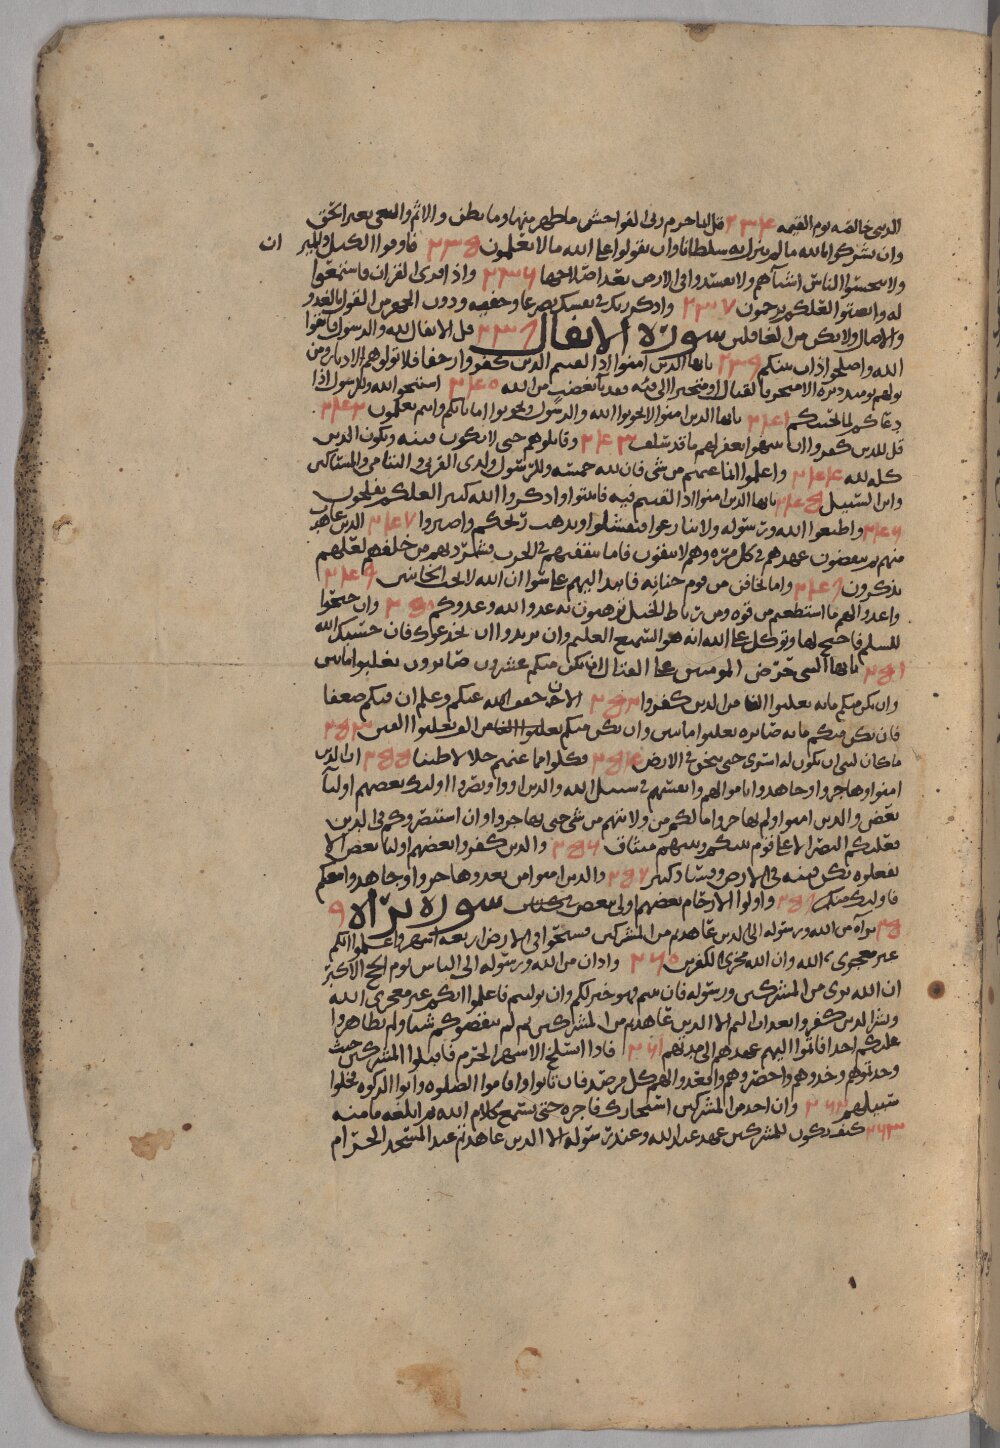 الدنيا خالصه يوم القيمه ٢٣٤ قل انما حرم ربي الفواحش ما ظهر منها وما بطن والاثم والبغي بغير الحق
وان تشركوا بالله ما لم ينزل به سلطانا وان تقولوا على الله ما لا تعلمون ٢٣٥ فاوفوا الكيل والميز ان
ولا تبخسوا الناس اشيآهم ولا تفسدوا في الارض بعد اصلاحها ٢٣٦ واذا قرئ القران فاستمعوا
له وانصتوا لعلكم ترحمون ٢٣٧ واذكر ربك في نفسك تضرعا وخفيه ودون الجهر من القول بالغدو
والاصال ولا تكن من الغافلين سورة الانفال ٢٣٨ قل الانفال لله والرسول فاتقوا
الله واصلحوا ذات بينكم ٢٣٩ يايها الذين امنوا اذا لقيتم الذين كفروا زحفا فلا تولوهم الادبار ومن
يولهم يومئذ دبره الا متحرفا لقتال او متحيزا الى فئه فقد بآ بغضب من الله ٢٤٠ استجيبوا لله وللرسول اذا
دعاكم لما يحييكم ٢٤١ يايها الذين امنوا لا تخونوا الله والرسول وتخونوا اماناتكم وانتم تعلمون ٢٤٢
قل للذين كفروا ان ينتهوا يغفر لهم ما قد سلف ٢٤٣ وقاتلوهم حتى لا تكون فتنه ويكون الدين
كله لله ٢٤٤ واعلموا انما غنمتم من شي فان لله خمسه وللرسول ولذى القربى واليتامى والمساكين
وابن السبيل ٢٤٥ يايها الذين امنوا اذا لقيتم فيه فاثبتوا واذكروا الله كثيرا لعلكم تفلحون
٢٤٦ واطيعوا الله ورسوله ولا تنازعوا فتفشلوا وتذهب ريحكم واصبروا ٢٤٧ الذين عاهدت
منهم ثم ينقضون عهدهم في كل مره وهم لا يتقون فاما تثقفنهم في الحرب فشرد بهم من خلفهم لعلهم
يذكرون ٢٤٨ واما تخافن من قوم خيانه فانبذ اليهم على سوا ان الله لا يحب الخاينين ٢٤٩
واعدوا لهم ما استطعتم من قوه ومن رباط الخيل ترهبون به عدو الله وعدوكم ٢٥٠ وان جنحوا
للسلم فاجنح لها وتوكل على الله انه هو السميع العليم وان يريدوا ان يخدعوك فان حسبك الله
٢٥١ يايها النبي حرض المومنين على القتال ان يكن منكم عشرون صابرون يغلبوا ماتين
وان يكن منكم مايه يغلبوا الفا من الذين كفروا ٢٥٢ الان خفف الله عنكم وعلم ان فيكم ضعفا
فان يكن منكم مايه صابره يغلبوا ماتين وان يكن منكم الف يغلبوا الفين ٢٥٣
ما كان لنبي ان يكون له اسرى حتى يثخن في الارض ٢٥٤ فكلوا مما غنمتم حلالا طيبا ٢٥٥ ان الذين
امنوا وهاجروا وجاهدوا باموالهم وانفسهم في سبيل الله والذين اووا ونصروا اوليك بعضهم اوليآ
بعض والذين امنوا ولم يهاجروا ما لكم من ولايتهم من شي حتى يهاجروا وان استنصروكم في الدين
فعليكم النصر الا على قوم بينكم وبينهم ميثاق ٢٥٦ والذين كفروا بعضهم اوليا بعض الا
تفعلوه تكن فتنه في الارض وفساد كبير ٢٥٧ والذين امنوا من بعد وهاجروا وجاهدوا معكم
فاوليك منكم ٢٥٨ واولوا الارحام بعضهم اولى ببعض سورة براه ٢٥٩
برآه من الله ورسوله الى الذين عاهدتم من المشركين فسيحوا في الارض اربعه اشهر واعلموا انكم
غير معجزى الله وان الله مخزى الكفرين ٢٦٠ واذان من الله ورسوله الى الناس يوم الحج الاكبر
ان الله برى من المشركين ورسوله فان تبتم فهو خير لكم وان توليتم فاعلموا انكم غير معجزى الله
وبشر الذين كفروا بعذاب اليم الا الذين عاهدتم من المشركين ثم لم ينقصوكم شيا ولم يظاهروا
عليكم احدا فاتموا اليهم عهدهم الى مدتهم ٢٦١ فاذا انسلخ الاشهر الحرم فاقتلوا المشركين حيث
وجدتموهم وخذوهم واحصروهم واقعدوا لهم كل مرصد فان تابوا واقاموا الصلوه واتوا الزكوه فخلوا
سبيلهم ٢٦٢ وان احد من المشركين استجارك فاجره حتى يسمع كلام الله ثم ابلغه مامنه
٢٦٣ كيف يكون للمشركين عهد عند الله وعند رسوله الا الذين عاهدتم عند المسجد الحرام